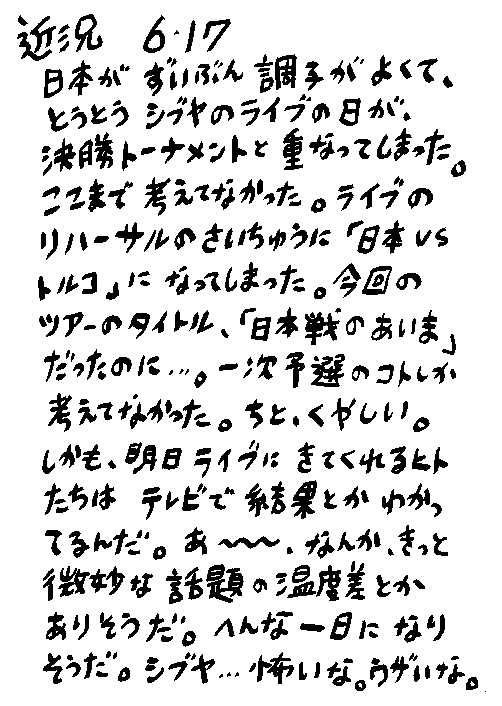 近況 6・17
日本が ずいぶん 調子が よくて、
とうとう シブヤのライブの日が、
決勝トーナメントと 重なってしまった。
ここまで 考えてなかった。ライブの
リハーサルのさいちゅうに「日本VS
トルコ」に なってしまった。今回の
ツアーのタイトル、「日本戦のあいま」
だったのに…。一次予選のコトしか
考えてなかった。ちと、くやしい。
しかも、明日ライブに きてくれるヒト
たちは テレビで 結果とか わかっ
てるんだ。あ〜〜〜、なんか、きっと
微妙な 話題の温度差とか
ありそうだ。へんな一日に なり
そうだ。シブヤ…怖いな。ウザいな。